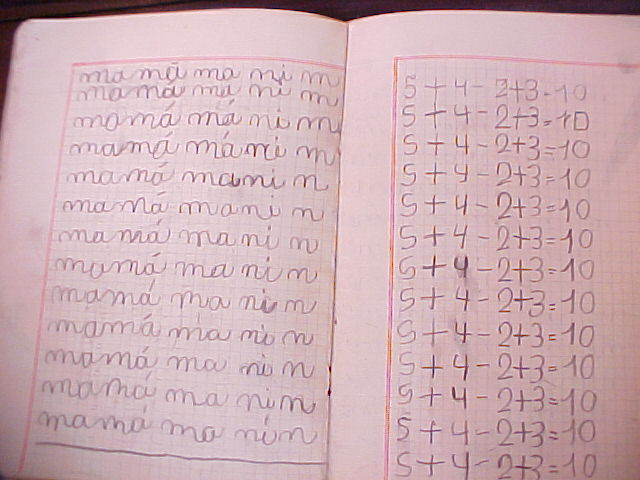 mamá ma ni n
mamá má ni n
mamá má ni m
mamá má ni m
mamá ma ni n
mamá ma ni n
mamá ma ni n
mamá ma ni n
mamá ma ni n
mamá ma ni n
mamá ma ni n
mamá ma ni n
mamá ma ni n
5+4-2+3=10
5+4-2+3=10
5+4-2+3=10
5+4-2+3=10
5+4-2+3=10
5+4-2+3=10
5+4-2+3=10
5+4-2+3=10
5+4-2+3=10
5+4-2+3=10
5+4-2+3=10
5+4-2+3=10
5+4-2+3=10